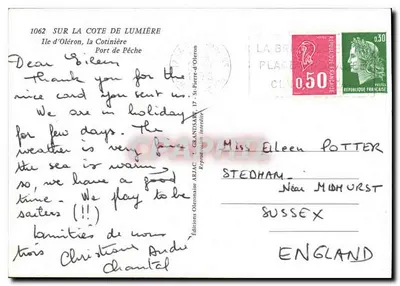 1062 SUR LA COTE DE LUMIÈRE
Ile d'Oléron, la Cotinière
Port de Pêche
Dear Eileen
Thank you for the
nice card you sent us.
We are in holiday
for few days. The
weather is very fine
the sea is warm,
so, we have a good
time. We play to be
sailors (!!)
amitiés de nous
trois Christiane André
Chantal
Editions Oléronaise ARJAC - GRANDSART 17 - St-Pierre-d'Oléron
Reproduction interdite
LA
PLAGE
0.50
RÉPUBLIQUE FRANÇAISE
0.30
REPUBLIQUE FRANÇAISE
Miss Eileen POTTER
STEDHAM.
Near MIDHURST
SUSSEX
ENGLAND